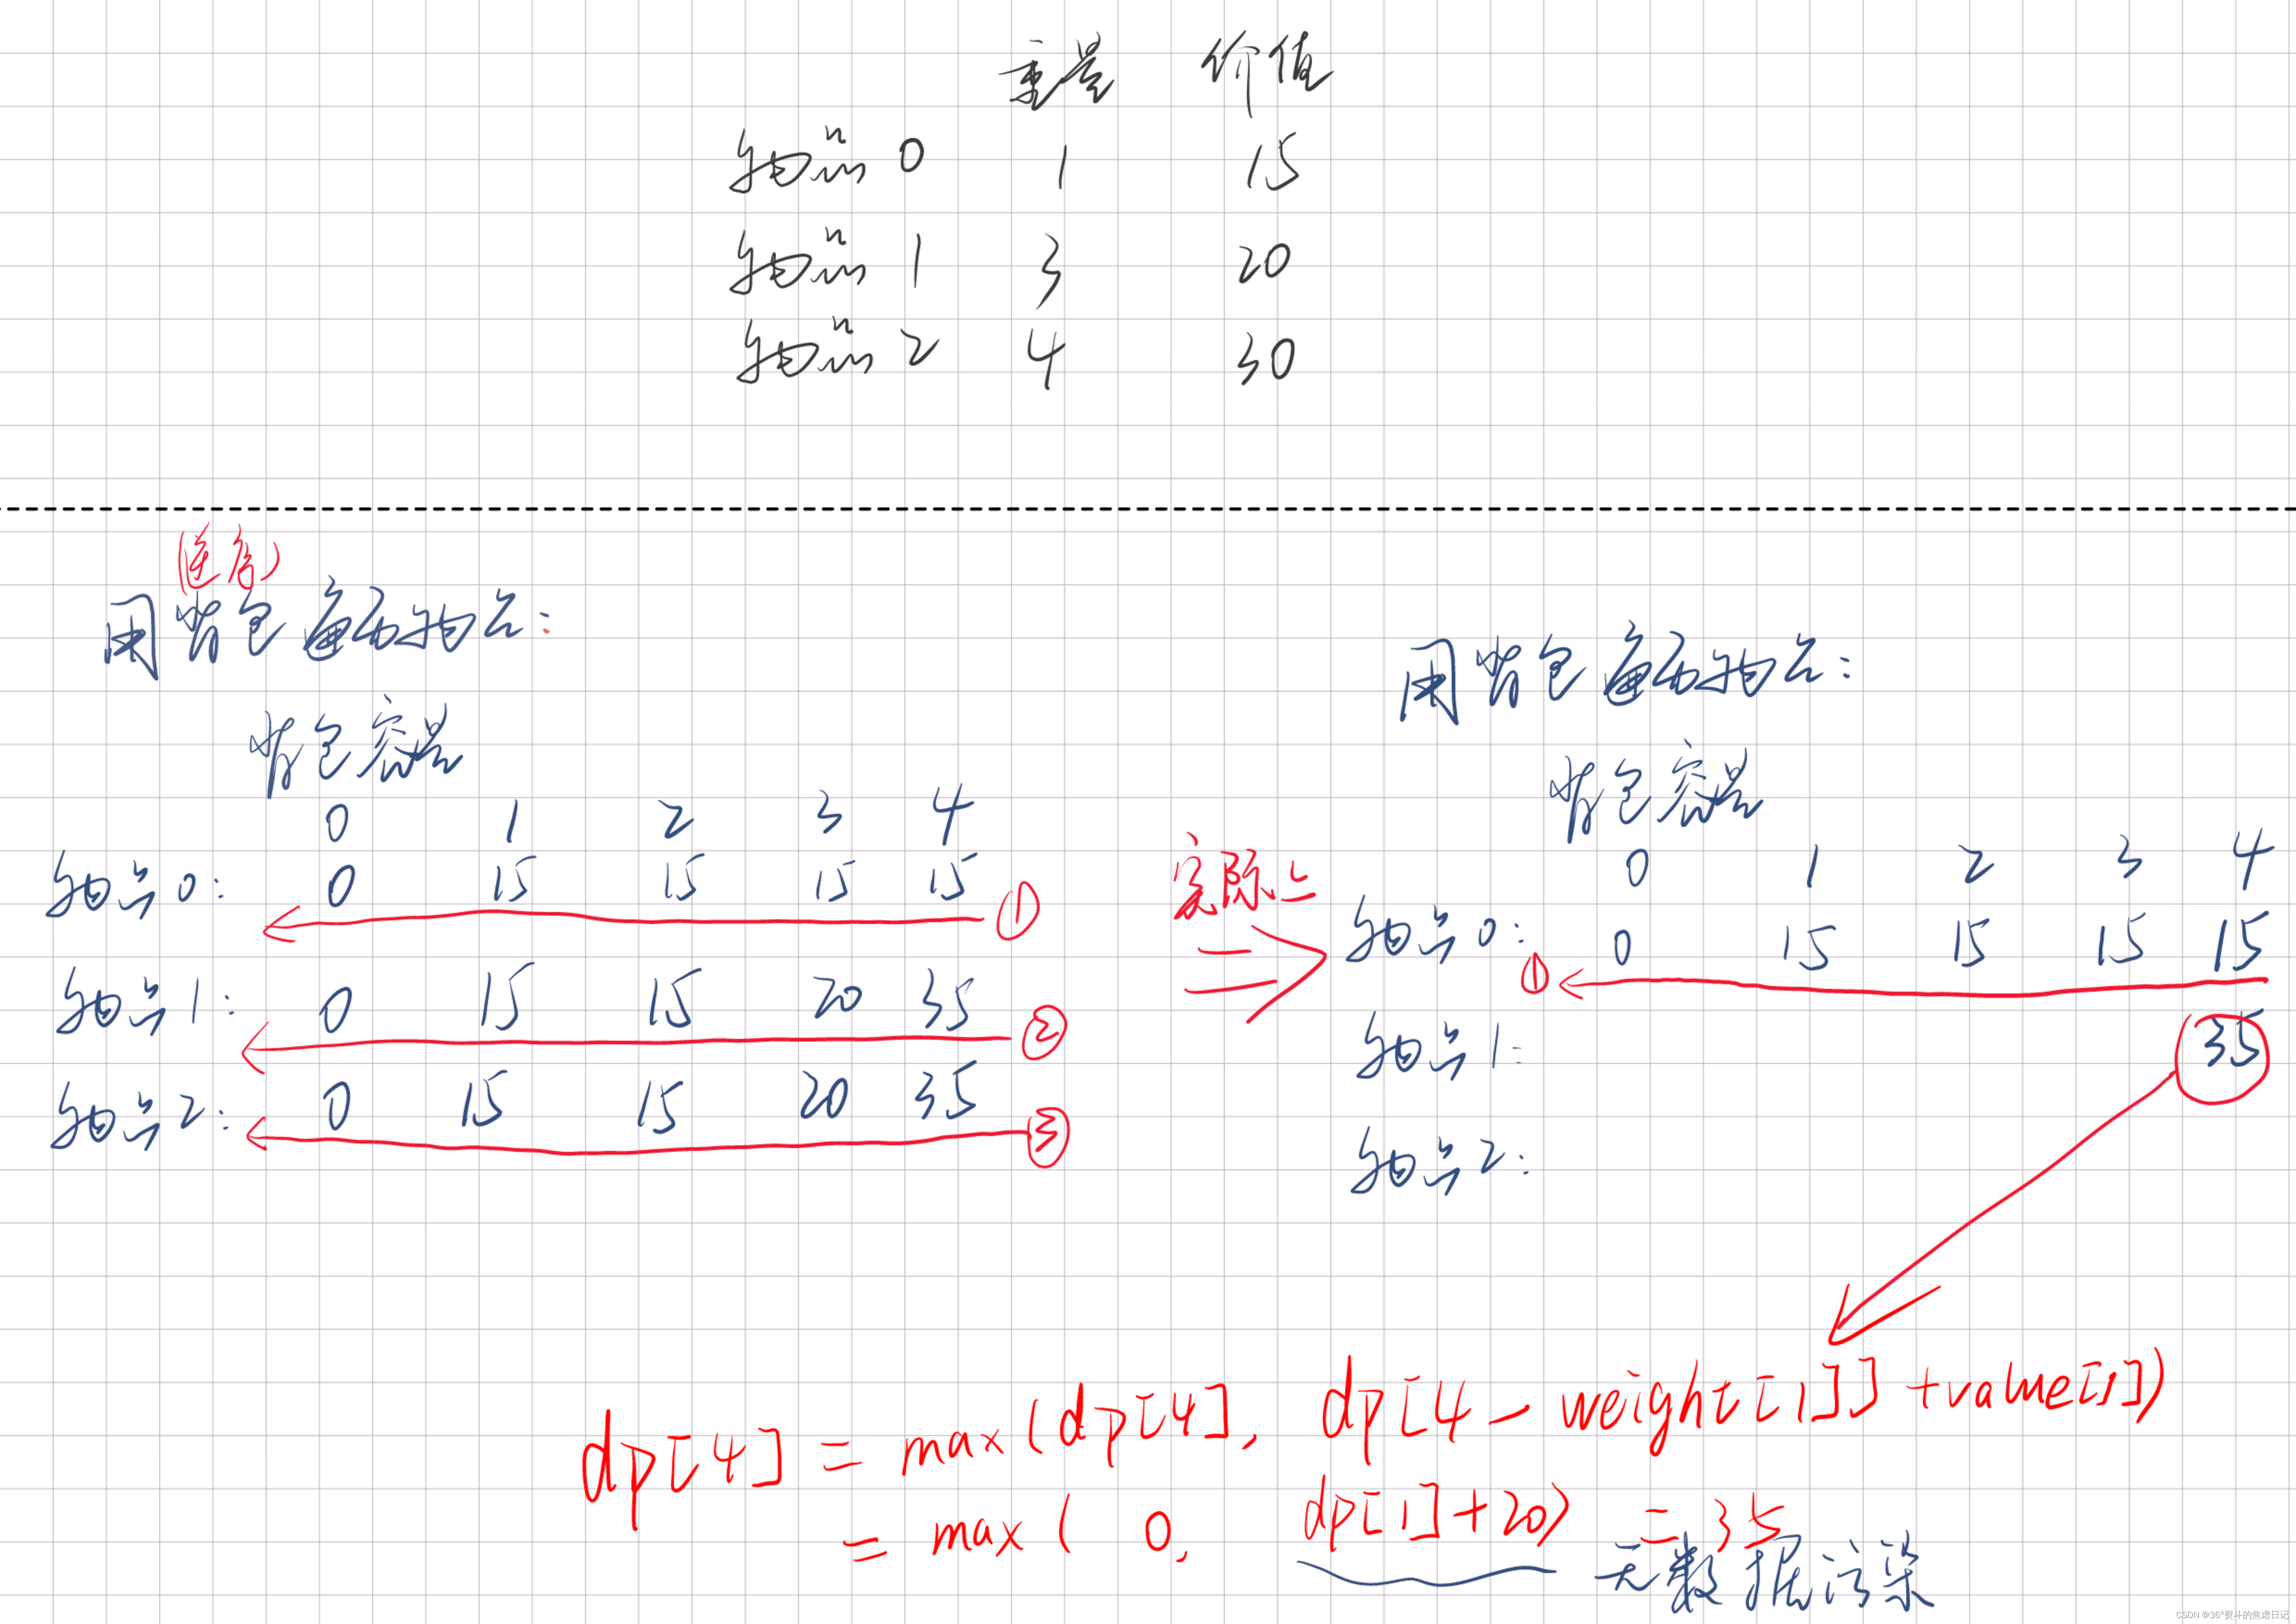 重量 价值
物品0 1 15
物品1 3 20
物品2 4 30
(逆序)
用背包遍历物品:
背包容量
0 1 2 3 4
物品0: 0 15 15 15 15
①
物品1: 0 15 15 20 35
②
物品2: 0 15 15 20 35
③
实际上
用背包遍历物品:
背包容量
0 1 2 3 4
物品0: 0 15 15 15 15
①
物品1: 35
物品2:
dp[4] = max(dp[4], dp[4-weight[1]]+value[1])
= max( 0, dp[1]+20) = 35
无数据污染
CSDN @36°熨斗的焦虑日记